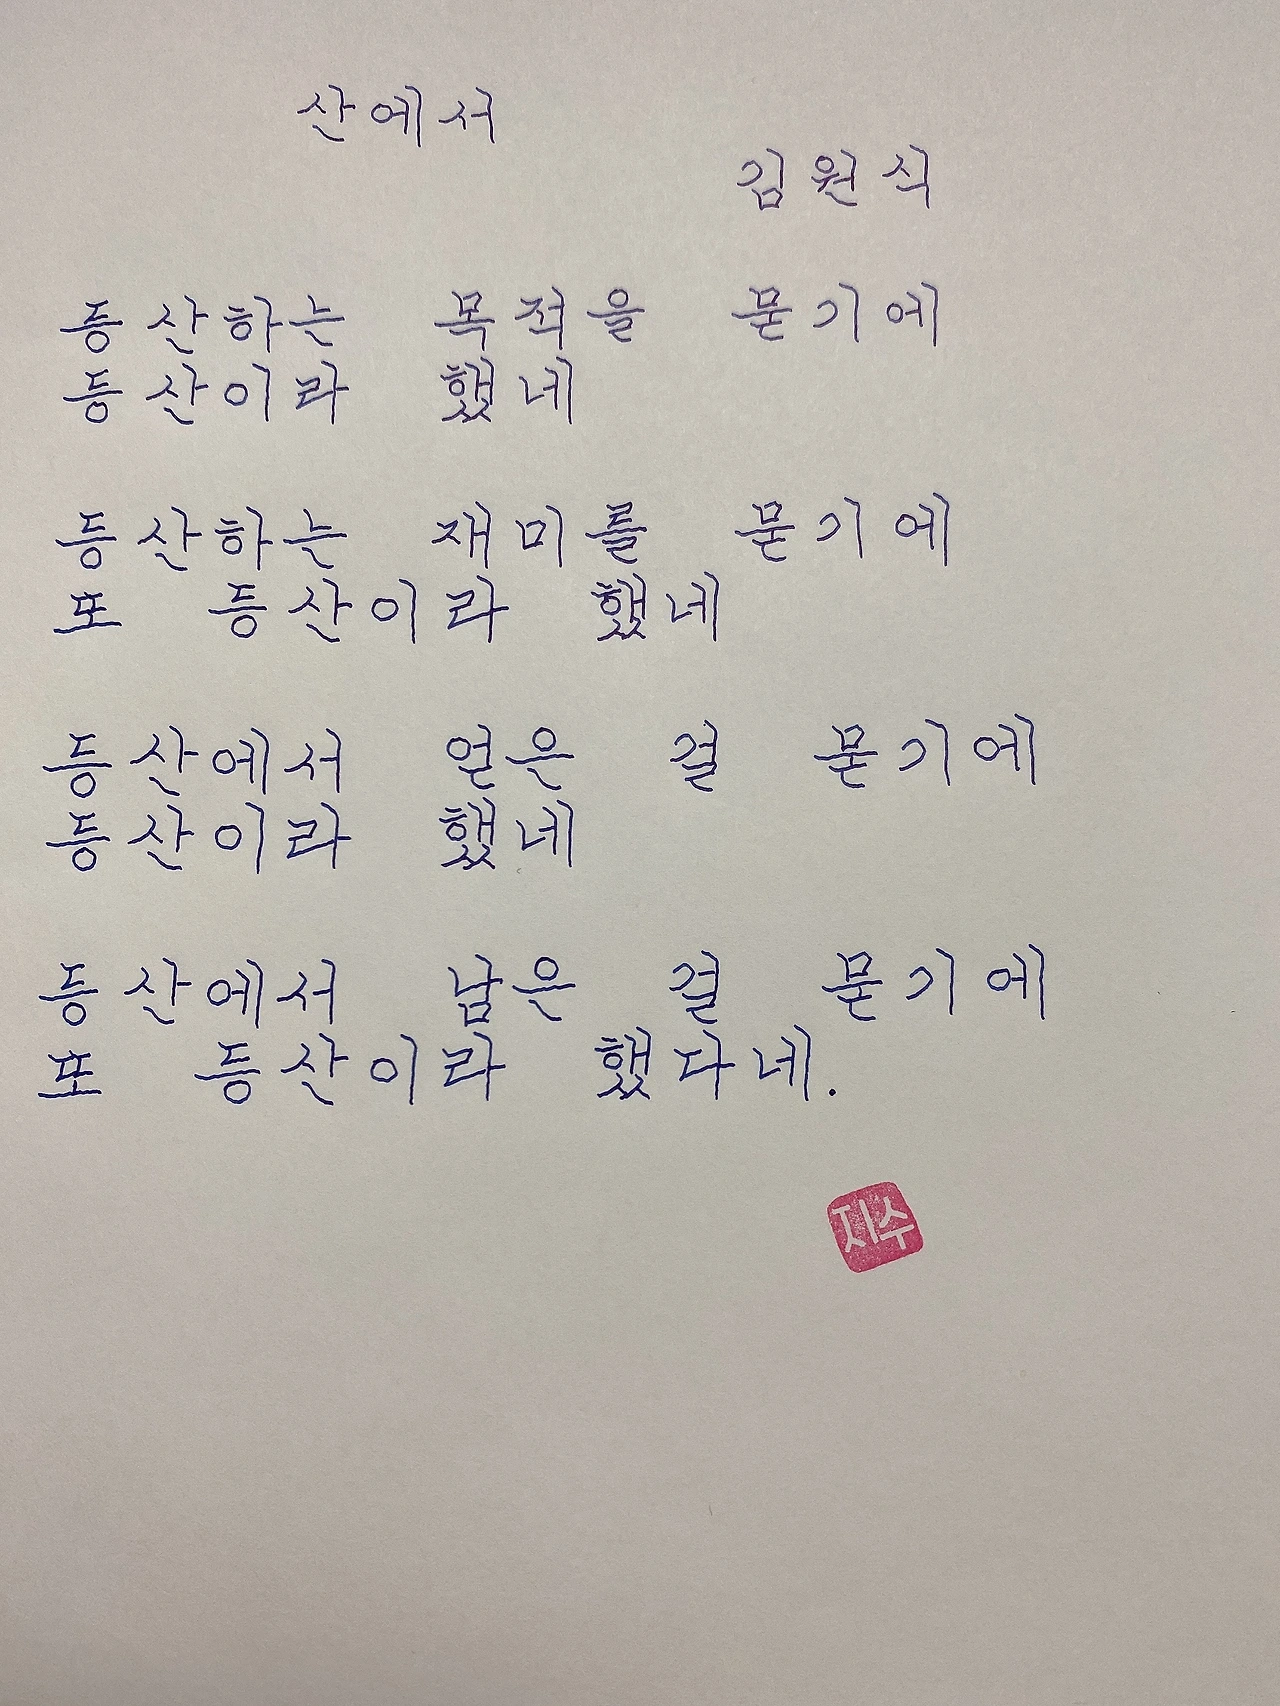 산에서
김원식
등산하는 목적을 묻기에
등산이라 했네
등산하는 재미를 묻기에
또 등산이라 했네
등산에서 얻은 걸 묻기에
등산이라 했네
등산에서 남은 걸 묻기에
또 등산이라 했다네.
지수